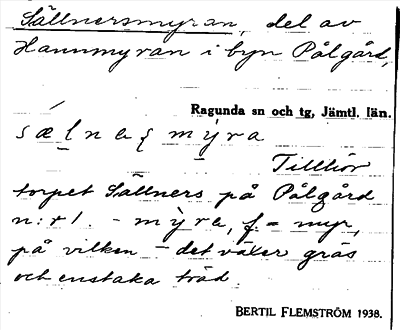 Sällnersmyran, del av
Hannmyran i byn Pålgård,
Ragunda sn och tg, Jämtl. län.
sæ̀lnaʂ mỳra
Tillhör
torpet Sällners på Pålgård
n:r 1. - mỳra, f. = myr,
på vilken - det växer gräs
och enstaka träd
BERTIL FLEMSTRÖM 1938.